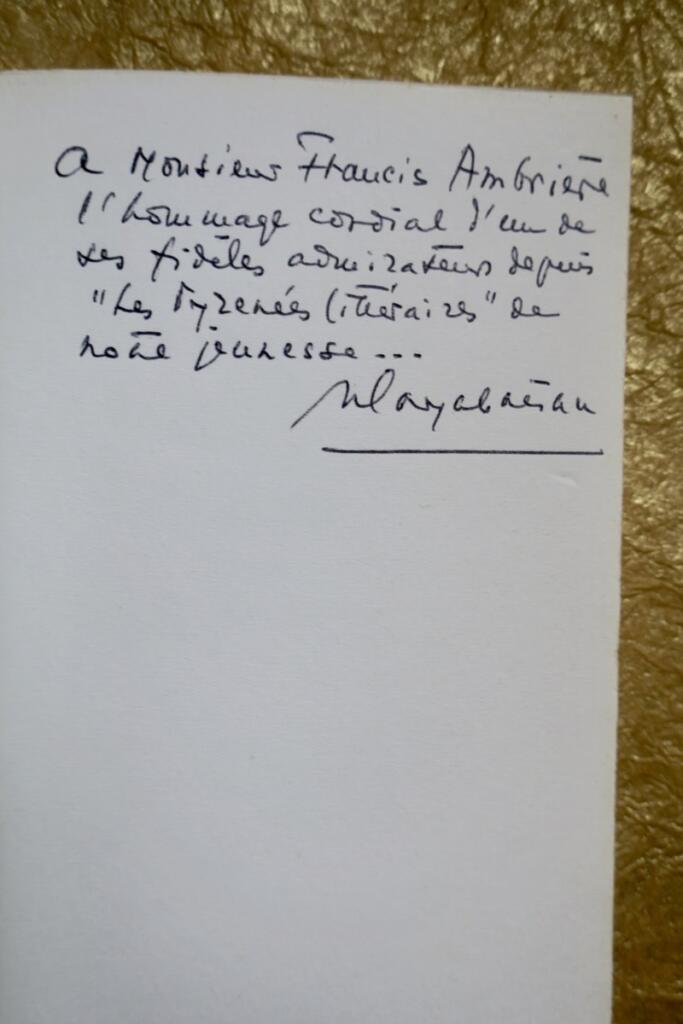 A Monsieur Francis Ambrière
l'hommage cordial d'un de
ses fidèles admirateurs depuis
"Les Pyrénées littéraires" de
notre jeunesse ...